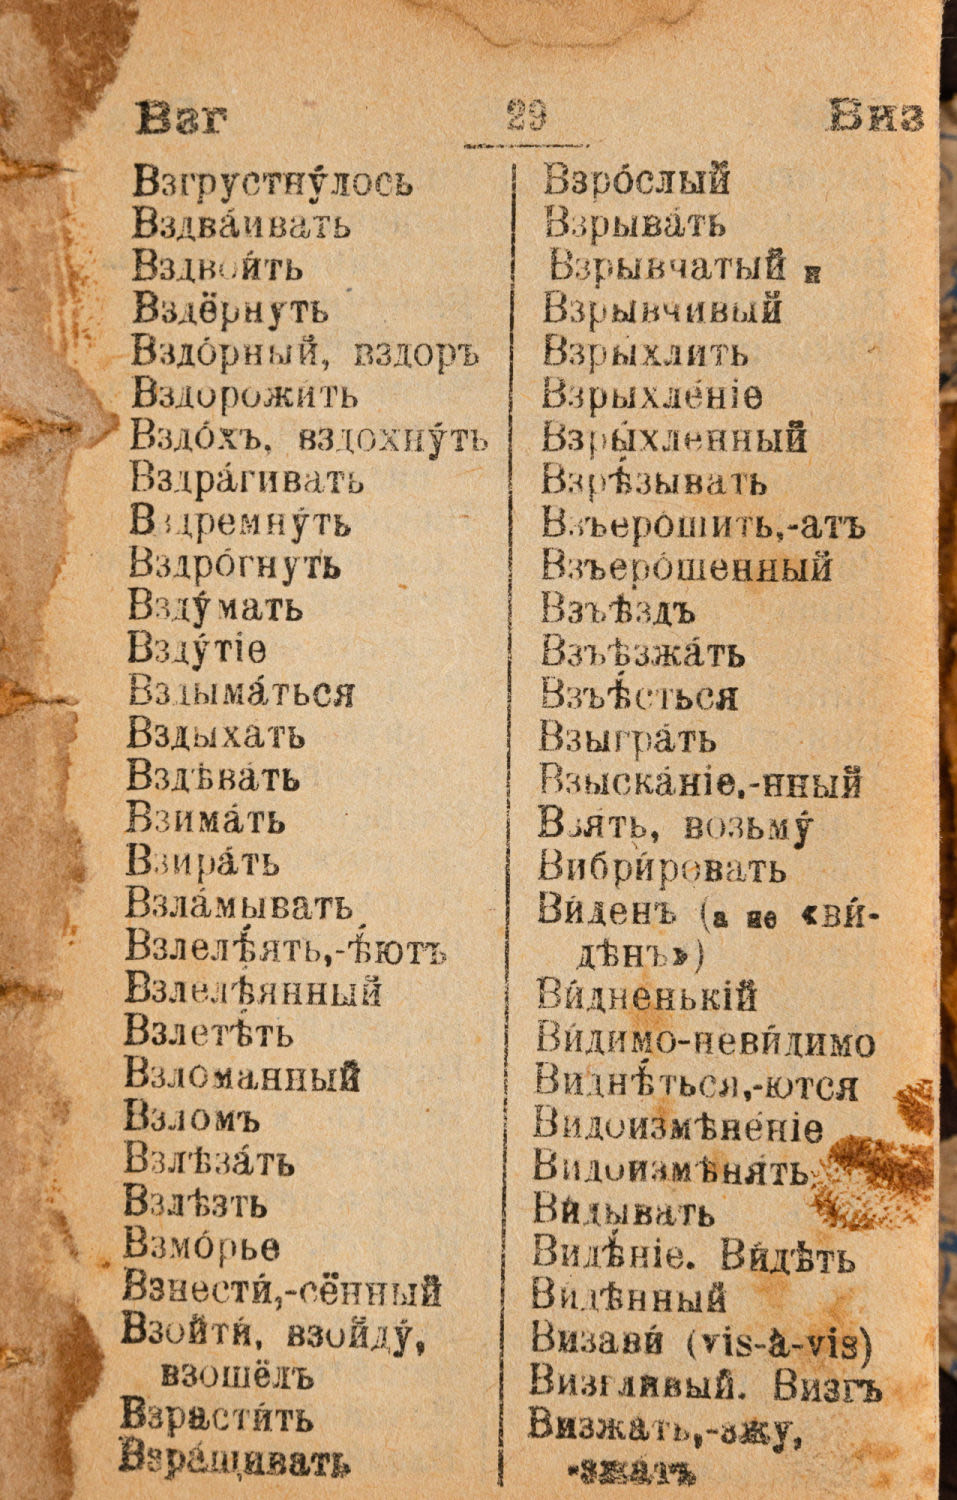 Взг 29 Виз
Взгрустну́лось
Вздва́ивать
Вздвои́ть
Вздёрнуть
Вздо́рный, вздоръ
Вздорожи́ть
Вздо́хъ, вздохну́ть
Вздра́гивать
Вздремну́ть
Вздро́гнуть
Взду́мать
Взду́тіе
Вздыма́ться
Вздыха́ть
Вздѣва́ть
Взима́ть
Взира́ть
Взла́мывать
Взлелѣ́ять,-ѣ́ютъ
Взлелѣ́янный
Взлетѣ́ть
Взло́манный
Взломъ
Взлѣза́ть
Взлѣзть
Взмо́рье
Взнести́,-сённый
Взойти́, взойду́,
взошёлъ
Взрасти́ть
Взра́щивать
Взро́слый
Взрыва́ть
Взрывчатый и
Взрывчивый
Взрыхли́ть
Взрыхле́ніе
Взры́хленный
Взрѣ́зывать
Взъеро́шить,-атъ
Взъеро́шенный
Взъѣздъ
Взъѣзжа́ть
Взъѣ́сться
Взыгра́ть
Взыска́ніе,-нный
Взять, возьму́
Вибри́ровать
Ви́денъ (а не «ви́-
дѣнъ»)
Ви́дненькій
Ви́димо-неви́димо
Виднѣ́ться,-ются
Видоизмѣне́ніе
Видоизмѣня́ть
Ви́дывать
Видѣ́ніе. Ви́дѣть
Ви́дѣнный
Визави́ (vis-à-vis)
Визгли́вый. Визгъ
Визжа́ть,-зжу́,
-зжа́тъ